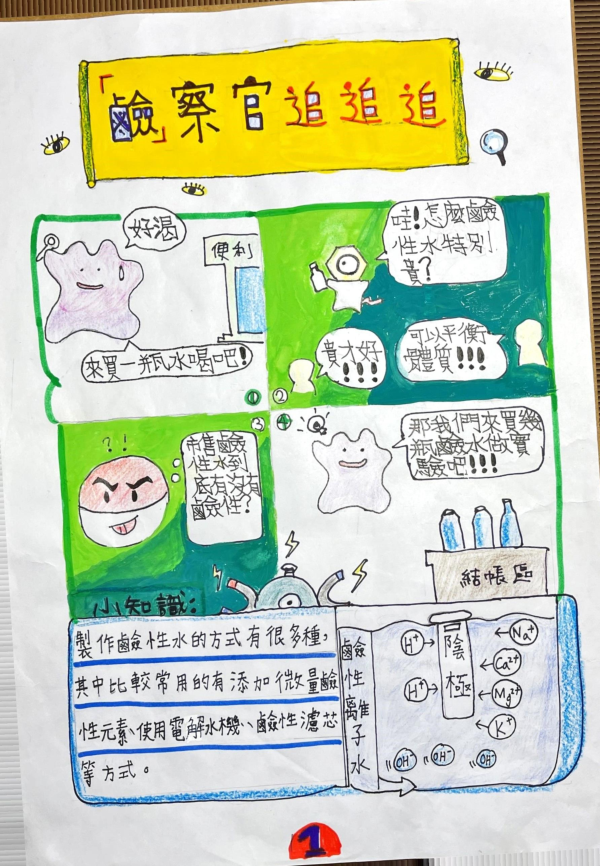 「鹼」察官追追追
好渴
便利
來買一瓶水喝吧!
①
哇!怎麼鹼
性水特別
貴?
貴才好
!!!!
可以平衡
體質!!!
②
?!
市售鹼
性水到
底有沒有
鹼性?
③
④
那我們來買幾
瓶鹼水做實
驗吧!!!
結帳區
小知識:
製作鹼性水的方式有很多種,
其中比較常用的有添加微量鹼
性元素、使用電解水機、鹼性濾芯
等方式。
鹼性離子水
陰極
H⁺
H⁺
Na⁺
Ca²⁺
Mg²⁺
K⁺
OH⁻
OH⁻
OH⁻
1